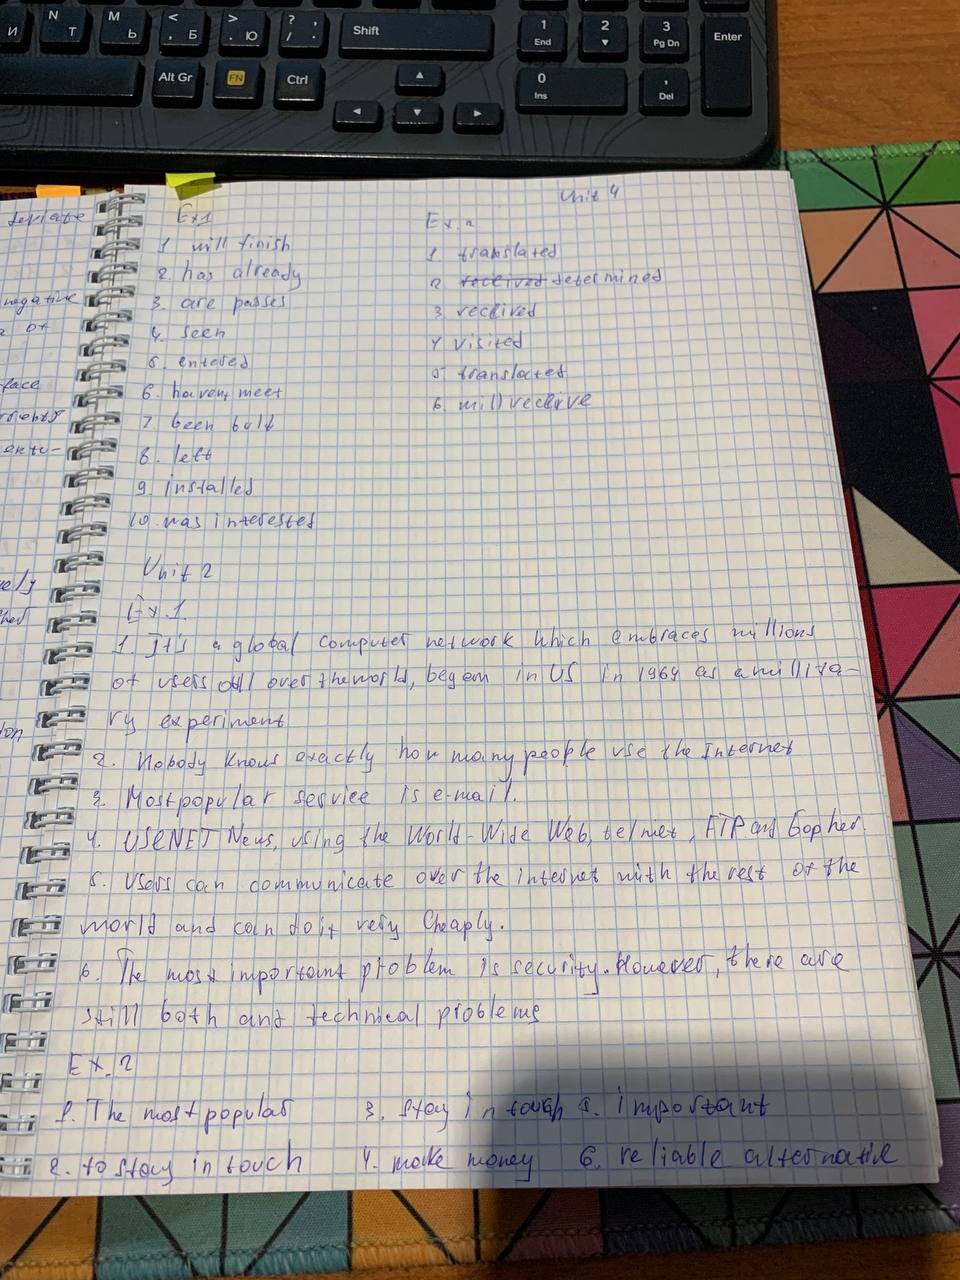 N T
M Ь
< , Б
> . Ю
? / , .
Shift
1 End
2
3 Pg Dn
Enter
Alt Gr
FN
Ctrl
0 Ins
, Del
negative
face
ely
Unit 4
Ex1
1 will finish
2. has already
3. are passes
4. seen
5. entered
6. havent meet
7. been built
8. left
9. installed
10. was interested
Ex. 2
1 translated
2 received determined
3 received
4 visited
5. translated
6. will receive
Unit 2
Ex. 1
1. It's a global computer network which embraces millions
of users all over the world, began in US in 1969 as a milita-
ry experiment
2. Nobody knows exactly how many people use the Internet
3. Most popular service is e-mail.
4. USENET News, using the World-Wide Web, telnet, FTP and Gopher.
5. Users can communicate over the internet with the rest of the
world and can do it very cheaply.
6. The most important problem is security. However, there are
still both and technical problems
Ex. 2
1. The most popular 3. stay in tough 5. important
2. to stay in touch 4. make money 6. reliable alternative